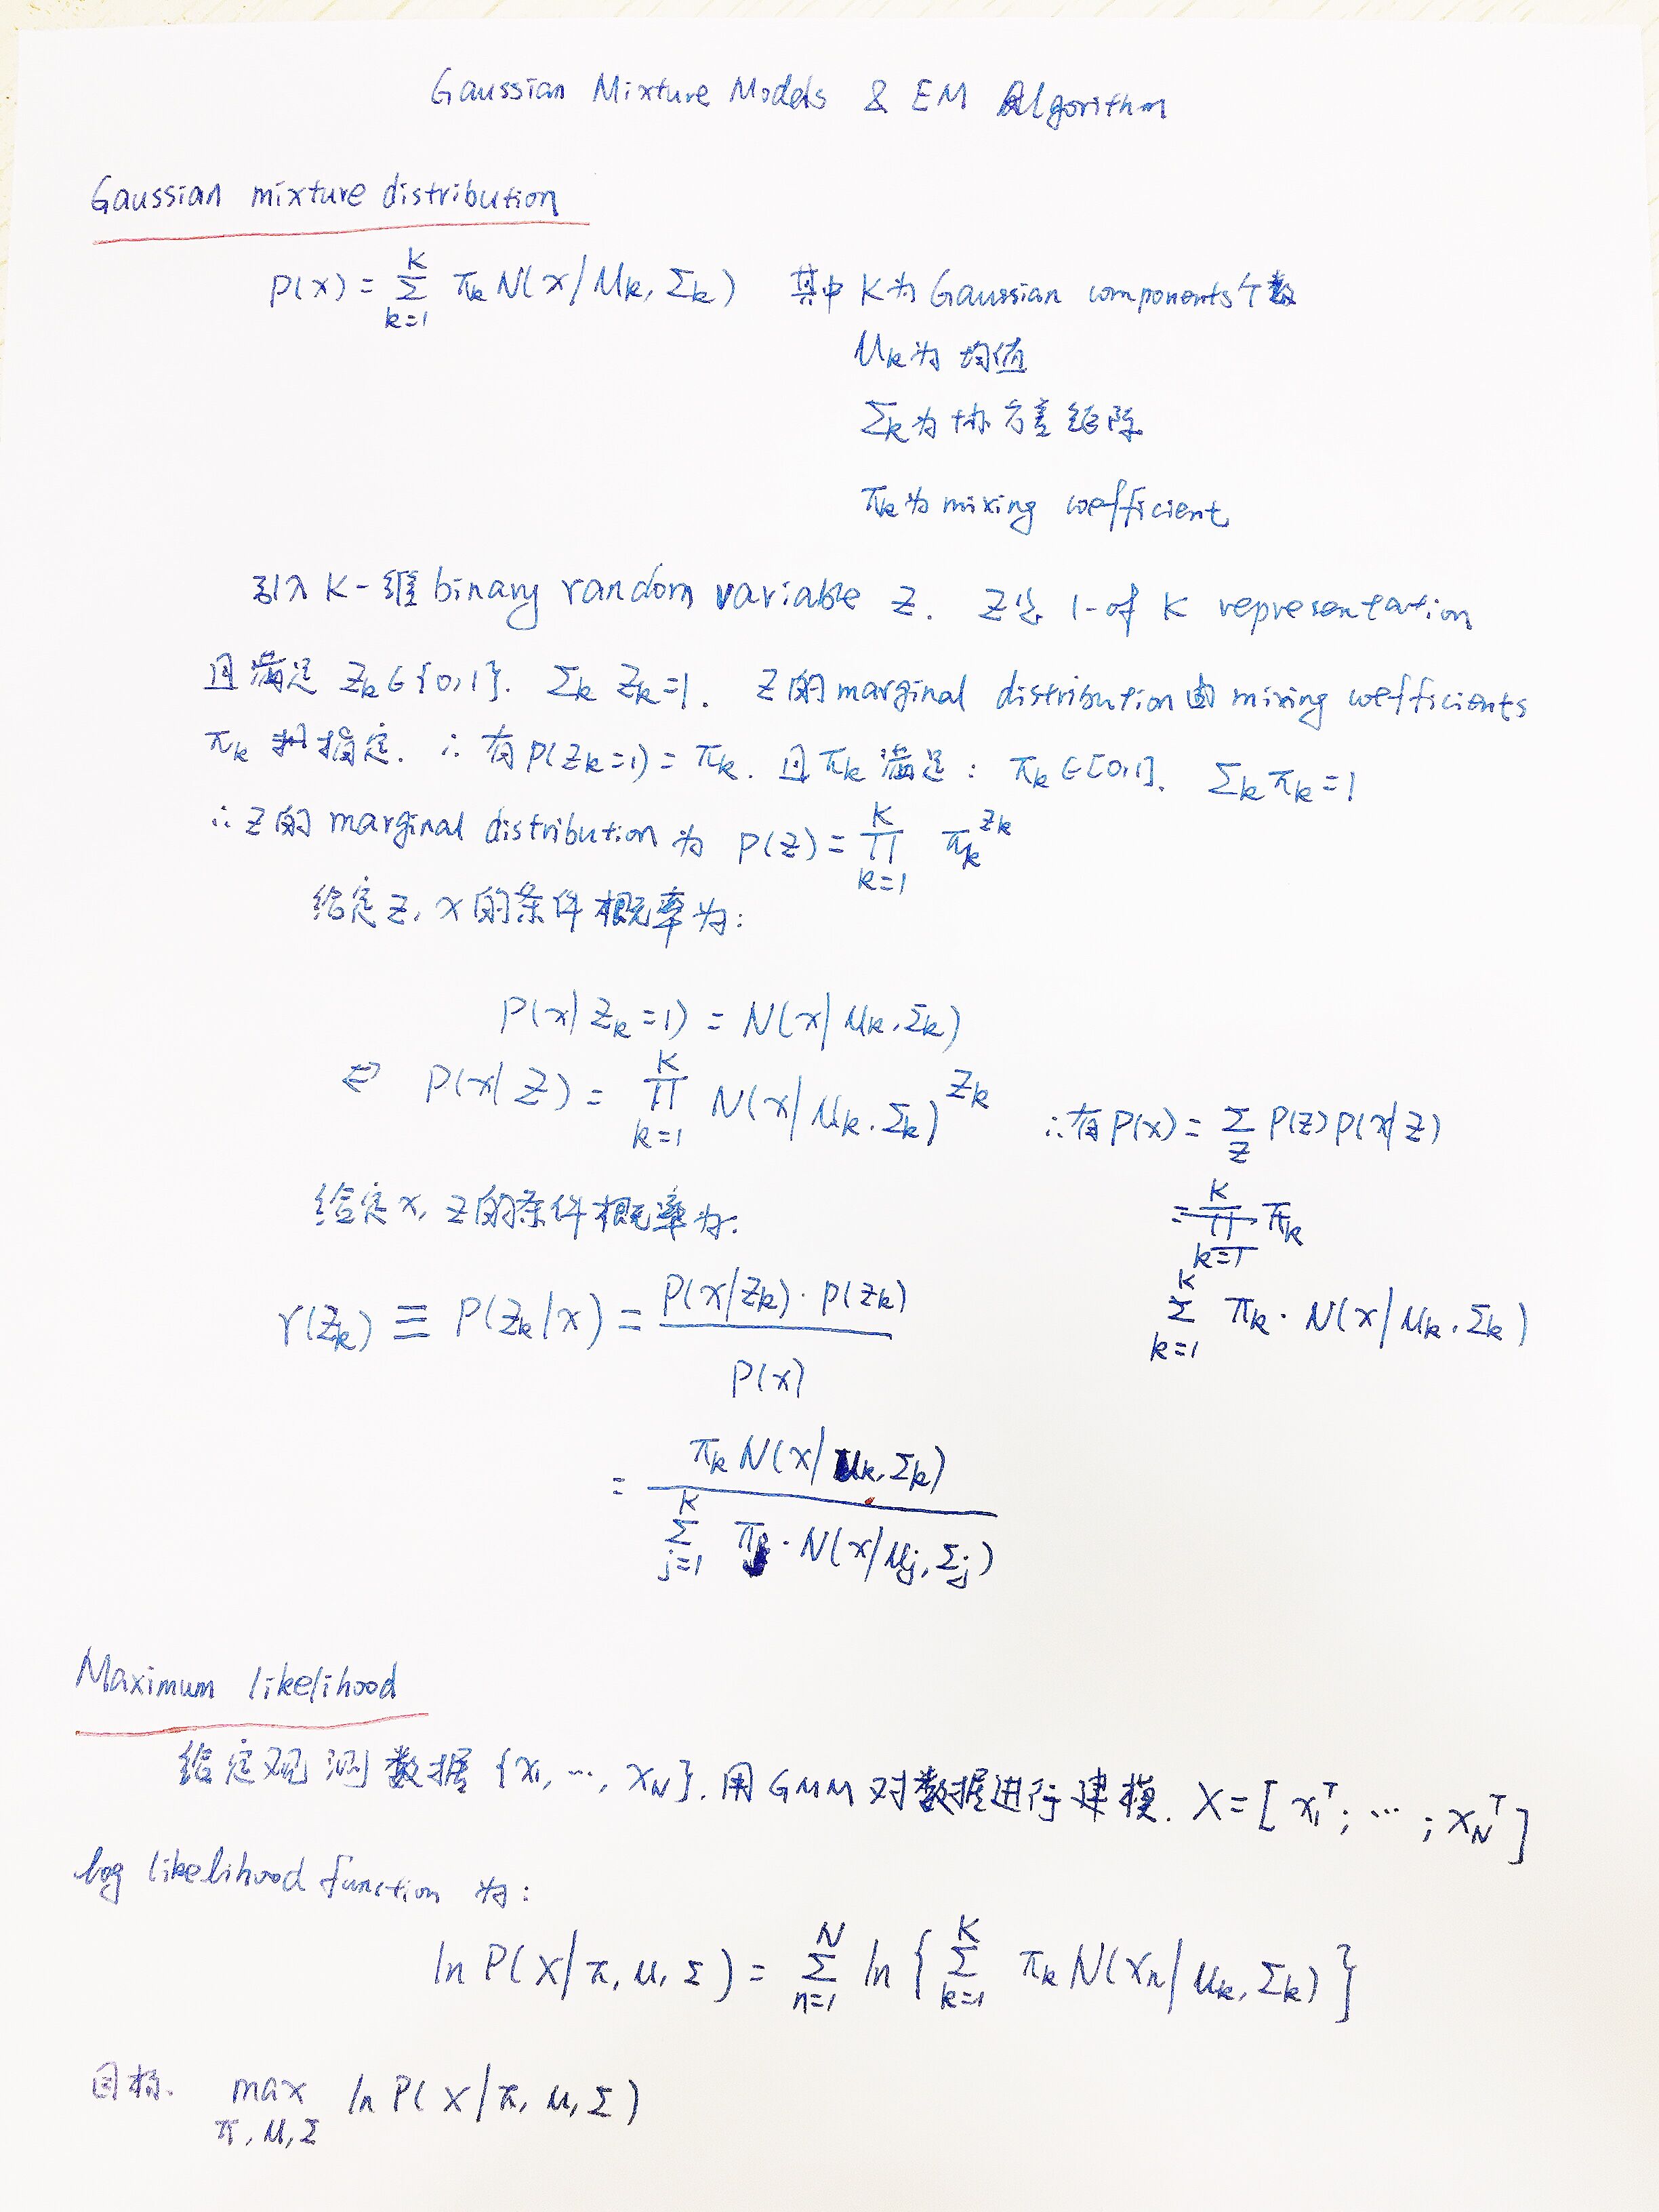 Gaussian Mixture Models & EM Algorithm
Gaussian mixture distribution
P(x) = Σ_{k=1}^{K} π_k N(x|μ_k, Σ_k) 其中 K为 Gaussian components个数
μ_k为 均值
Σ_k为 协方差矩阵
π_k为 mixing coefficient
引入 K-维 binary random variable z. z为 1-of K representation
且满足 z_k∈{0,1}. Σ_k z_k=1. z的 marginal distribution由 mixing coefficients
π_k 指定. ∴有 p(z_k=1) = π_k. 且 π_k 满足: π_k∈[0,1]. Σ_k π_k=1
∴z的 marginal distribution 为 p(z) = ∏_{k=1}^{K} π_k^{z_k}
给定 z, x的条件概率为:
P(x|z_k=1) = N(x|μ_k, Σ_k)
⇔ P(x|z) = ∏_{k=1}^{K} N(x|μ_k, Σ_k)^{z_k} ∴有 P(x) = Σ_z P(z)P(x|z)
给定 x, z的条件概率为.
= ∏_{k=1}^{K} π_k
Σ_{k=1}^{K} π_k · N(x|μ_k, Σ_k)
γ(z_k) ≡ P(z_k|x) = P(x|z_k) · p(z_k) / P(x)
= π_k N(x|μ_k, Σ_k) / Σ_{j=1}^{K} π_j · N(x|μ_j, Σ_j)
Maximum likelihood
给定观测数据 {x_1, ⋯, x_N}. 用 GMM 对数据进行建模. X = [x_1^T; ⋯ ; x_N^T]
log likelihood function 为:
ln P(X|π, μ, Σ) = Σ_{n=1}^{N} ln { Σ_{k=1}^{K} π_k N(x_n|μ_k, Σ_k) }
目标. max_{π, μ, Σ} ln P(X|π, μ, Σ)